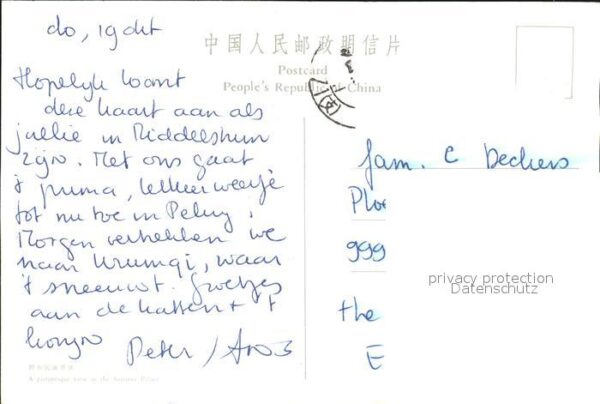 do, 19 okt
中国人民邮政明信片
Postcard
People's Republic of China
Hopelijk komt
deze kaart aan als
jullie in Middelshum
zijn. Met ons gaat
't prima, lekker weertje
tot nu toe in Peking.
Morgen vertrekken we
naar Urumqi, waar
't sneeuwt. Groetjes
aan de katten + 't
konijn
Peter /
fam. C Deckers
Plo
999
privacy protection
Datenschutz
the
E
A picturesque view in the Summer Palace